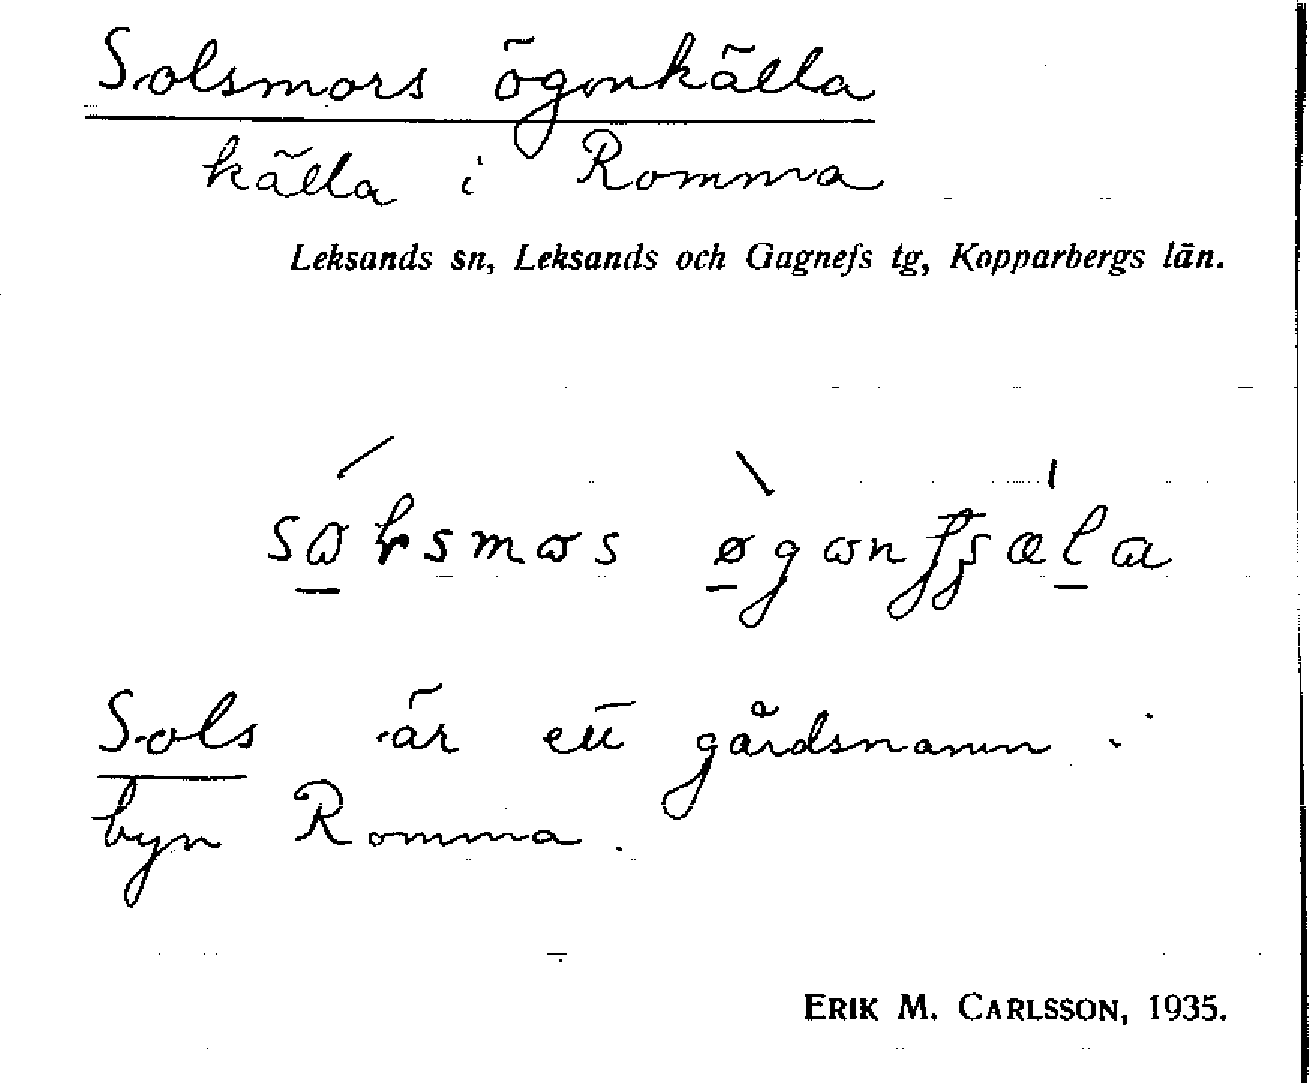 Solsmors ögonkälla
källa i Romma
Leksands sn, Leksands och Gagnefs tg, Kopparbergs län.
Sols är ett gårdsnamn i
byn Romma.
ERIK M. CARLSSON, 1935.